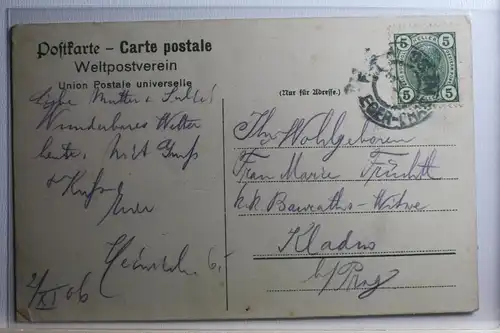 Postkarte – Carte postale
Weltpostverein
Union Postale universelle
(Nur für Adresse.)
Liebe Mutter u.
Wunderbares Wetter
heute. Mit Gruß
u Kuß
Euer
Heinrich
2/XI 06
Ihr Wohlgeboren
Frau Marie
k.k. Bauraths-Witwe
Kladno
b/Prag
5 5
5 5
EGER-